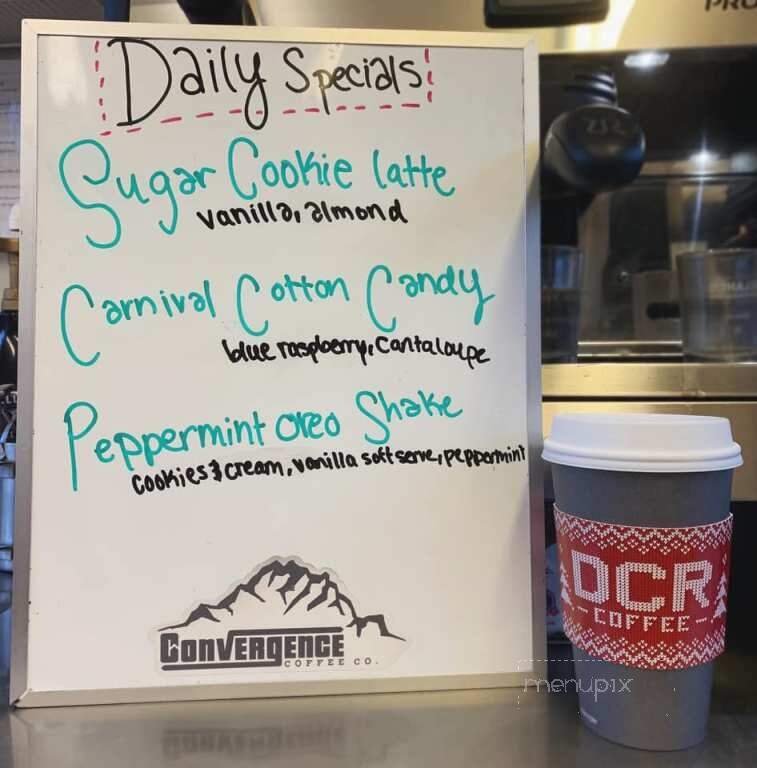 Daily Specials
Sugar Cookie latte
vanilla, almond
Carnival Cotton Candy
blue raspberry, cantaloupe
Peppermint oreo Shake
cookies & cream, vanilla soft serve, peppermint
ConVERGENCE
COFFEE CO.
DCR
COFFEE
menupix